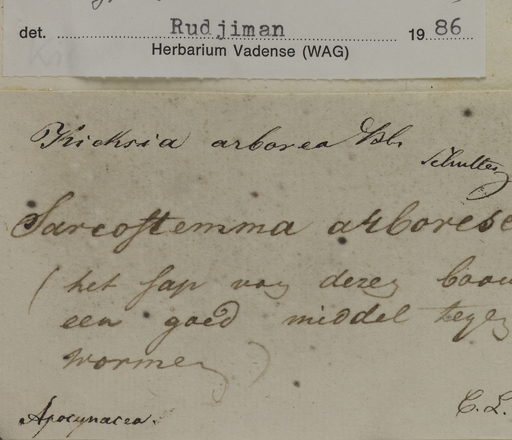 det. Rudjiman 1986
Herbarium Vadense (WAG)
Kicksia arborea Bl.
Schultes
Sarcostemma arborese
(het sap van dezen boom
een goed middel tegen
wormen)
Apocynacea.
C.L.